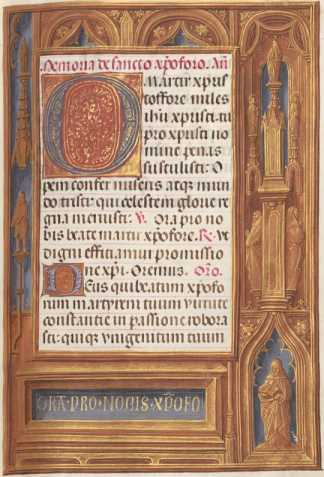 Memoria de sancto xp̄oforo. Añ
O Martir xp̄us
toffore miles
ihū xp̄i uset tu
pro xp̄i usti no
mine penas
sustulisti: O
pem confer miseris atq̄ mun
do tristi: qui celestem glorie re
gna meruisti: V. Ora pro no
bis beate martir xp̄ofore. R. vt
digni efficiamur promissio
ne xp̄i. Oremus. Orō.
Deus qui beatum xp̄ofo
rum martyrem tuum virtute
constantie in passione robora
sti: qui q; vnigenitum tuum
ORA·PRO·NOBIS·XP̄OFO